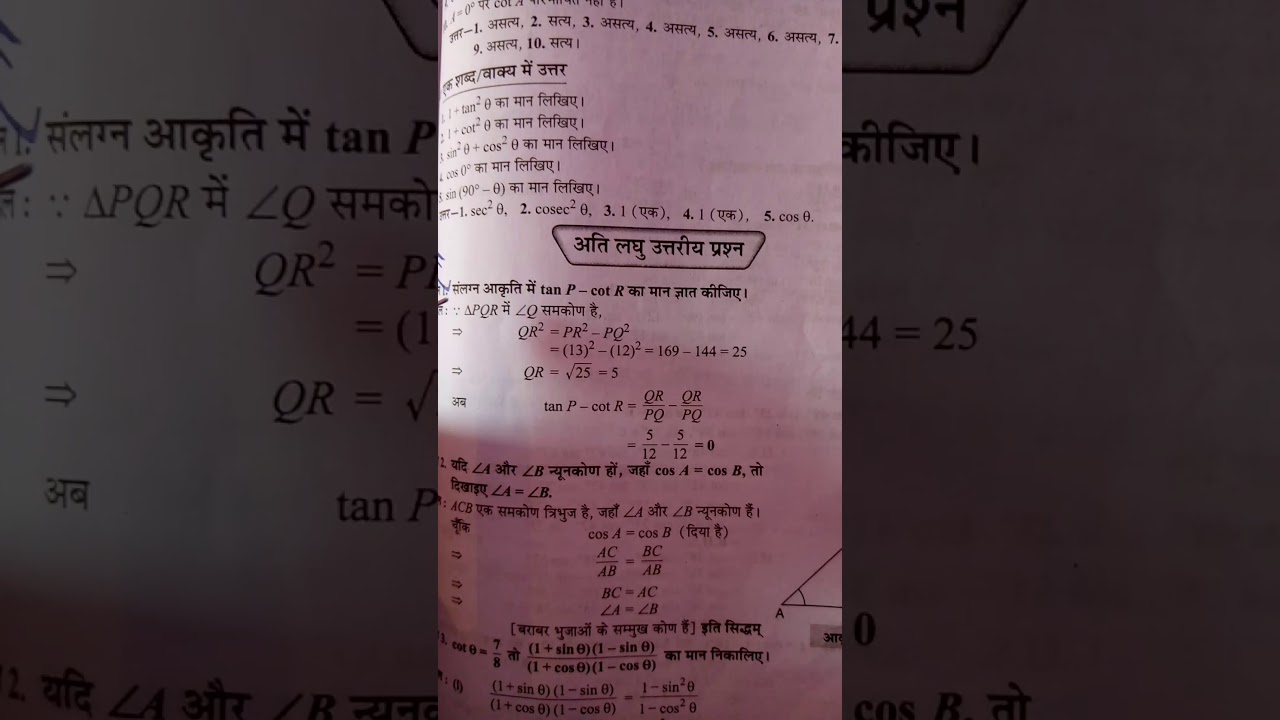 A = 0° पर cot A परिभाषित नहीं है।
उत्तर–1. असत्य, 2. सत्य, 3. असत्य, 4. असत्य, 5. असत्य, 6. असत्य, 7.
9. असत्य, 10. सत्य।
एक शब्द/वाक्य में उत्तर
1. 1 + tan² θ का मान लिखिए।
2. 1 + cot² θ का मान लिखिए।
3. sin² θ + cos² θ का मान लिखिए।
4. cos 0° का मान लिखिए।
5. sin (90° – θ) का मान लिखिए।
उत्तर–1. sec² θ, 2. cosec² θ, 3. 1 (एक), 4. 1 (एक), 5. cos θ.
अति लघु उत्तरीय प्रश्न
संलग्न आकृति में tan P – cot R का मान ज्ञात कीजिए।
∵ ΔPQR में ∠Q समकोण है,
⇒ QR² = PR² – PQ²
= (13)² – (12)² = 169 – 144 = 25
⇒ QR = √25 = 5
अब tan P – cot R = QR/PQ – QR/PQ
= 5/12 – 5/12 = 0
2. यदि ∠A और ∠B न्यूनकोण हों, जहाँ cos A = cos B, तो
दिखाइए ∠A = ∠B.
ACB एक समकोण त्रिभुज है, जहाँ ∠A और ∠B न्यूनकोण हैं।
चूँकि cos A = cos B (दिया है)
⇒ AC/AB = BC/AB
⇒ BC = AC
⇒ ∠A = ∠B
[बराबर भुजाओं के सम्मुख कोण हैं] इति सिद्धम्
A
3. cot θ = 7/8 तो (1 + sin θ)(1 – sin θ)/(1 + cos θ)(1 – cos θ) का मान निकालिए।
(i) (1 + sin θ)(1 – sin θ)/(1 + cos θ)(1 – cos θ) = 1 – sin² θ/1 – cos² θ